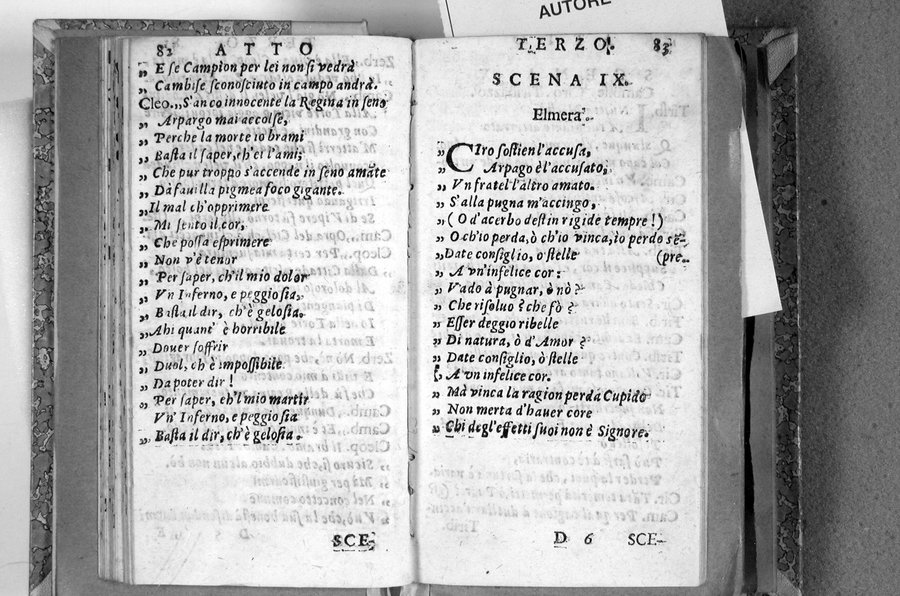 AUTORE
82 ATTO
„ E se Campion per lei non si vedrà
„ Cambise sconosciuto in campo andrà.
Cleo.„ S'anco innocente la Regina in seno
„ Arpargo mai accolse,
„ Perche la morte io brami
„ Basta il saper, ch'ei l'ami;
„ Che pur troppo s'accende in seno amãte
„ Dà favilla pigmea foco gigante.
„ Il mal ch'opprimere
„ Mi sento il cor,
„ Che possa esprimere
„ Non v'è tenor
„ Per saper, ch'il mio dolor
„ Vn Inferno, e peggio sia,
„ Basta il dir, ch'è gelosia.
„ Ahi quant' è horribile
„ Dover soffrir
„ Duol, ch'è impossibile
„ Da poter dir!
„ Per saper, ch'l mio martir
Vn' Inferno, e peggio sia
„ Basta il dir, ch'è gelosia.
SCE-
TERZO. 83
SCENA IX.
Elmera.
„ CIro sostien l'accusa,
„ Arpago è l'accusato,
„ Vn fratel l'altro amato.
„ S'alla pugna m'accingo,
„ (O d'acerbo destin rigide tempre!)
„ O ch'io perda, ò ch'io vinca, io perdo sẽ-
„ Date consiglio, o stelle (pre.
„ A vn'infelice cor:
„ Vado à pugnar, ò nò?
„ Che risoluo? che fò?
„ Esser deggio ribelle
„ Di natura, ò d'Amor?
„ Date consiglio, ò stelle
„ A vn infelice cor.
„ Mà vinca la ragion perda Cupido
„ Non merta d'hauer core
„ Chi degl'effetti suoi non è Signore.
D 6 SCE-